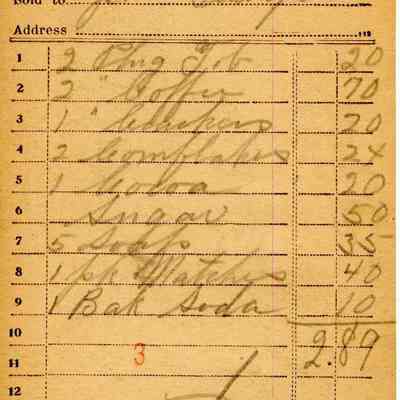 Sold to
Address
1 2 Plug Tob 20
2 2 " Coffee 70
3 1 " Crackers 20
4 2 Cornflakes 24
5 1 Cocoa 20
6 Sugar 50
7 5 Soaps 35
8 1 pk Matches 40
9 1 Bak Soda 10
10 2.89
11 3
12